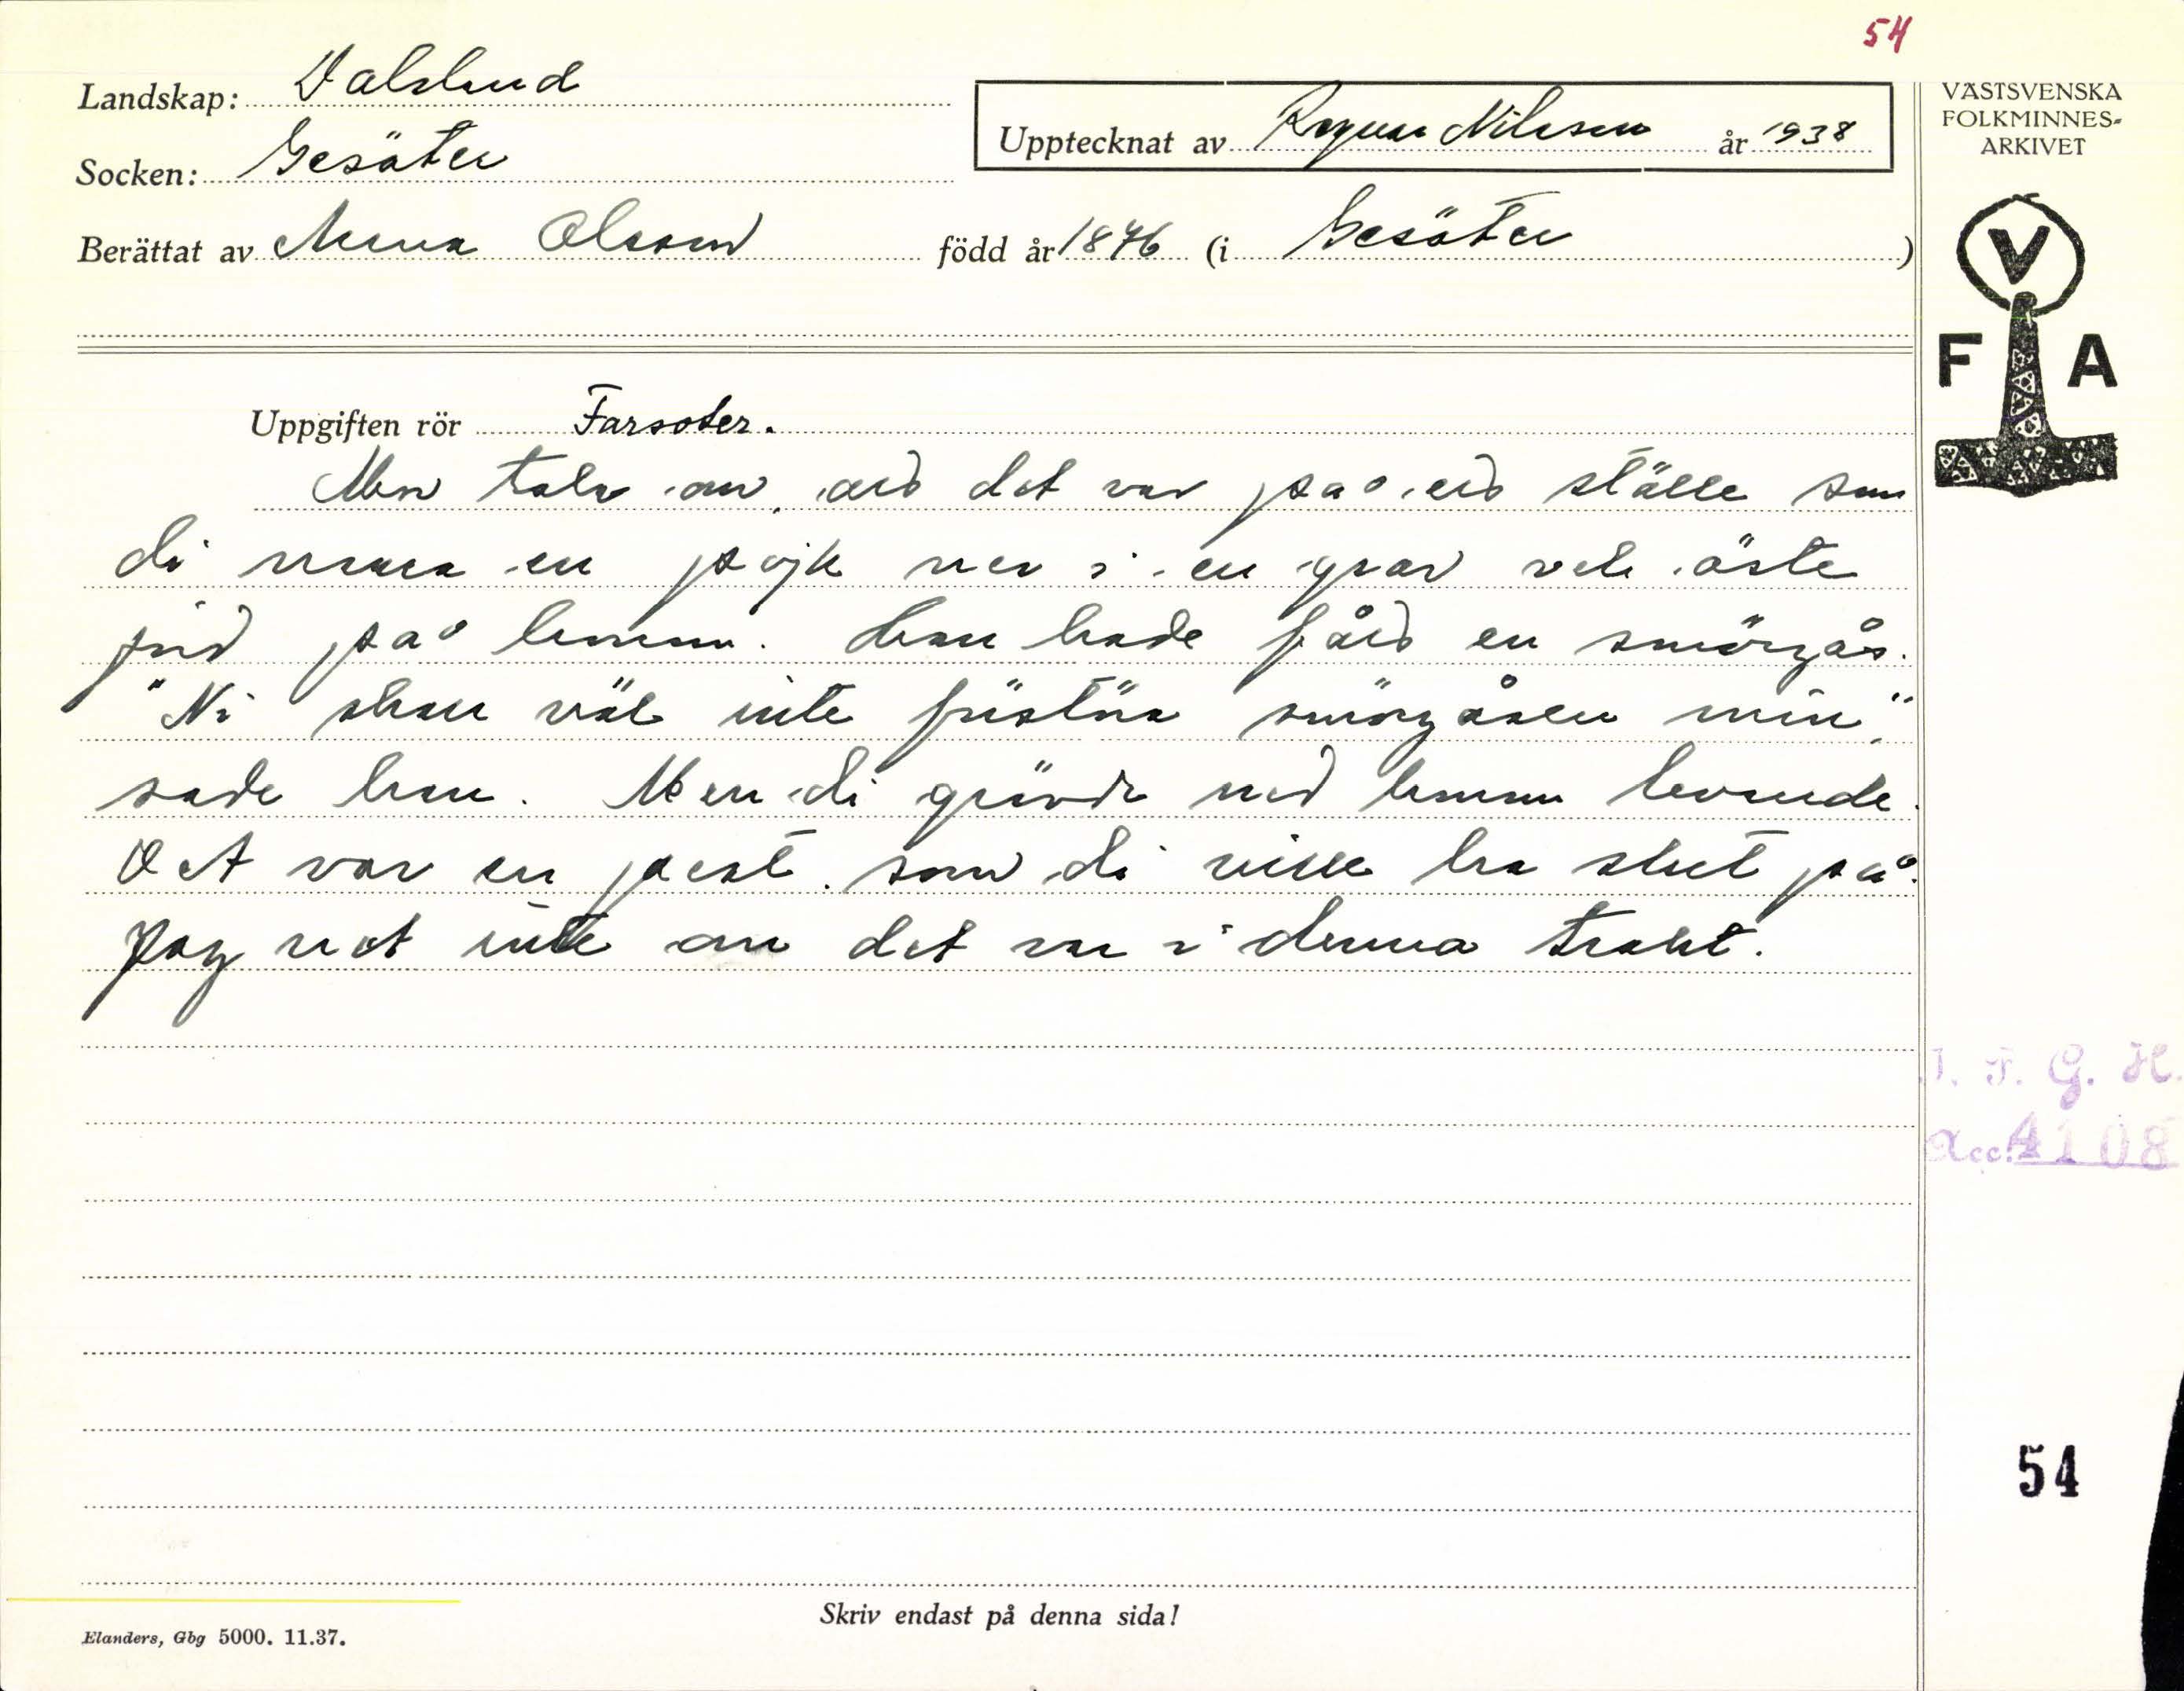 54
Landskap: Dalsland
Socken: Gesäter
Upptecknat av Ragnar Nilsson år 1938
Berättat av Anna Olsson född år 1846 (i Gesäter)
VÄSTSVENSKA
FOLKMINNES-
ARKIVET
V
F A
Uppgiften rör Farsoter.
Men tala om, att det var på ett ställe som
di en pojk ner i en grav och öste
jord på honom. Han hade fått en smörgås.
"Ni skall väl inte förstöra smörgåsen min,"
sade han. Men di grävde ned honom levande.
Det var en pest som di ville ha slut på.
Jag vet inte om det var i denna trakt.
I. F. G. H.
Acc. 4108
54
Skriv endast på denna sida!
Elanders, Gbg 5000. 11.37.